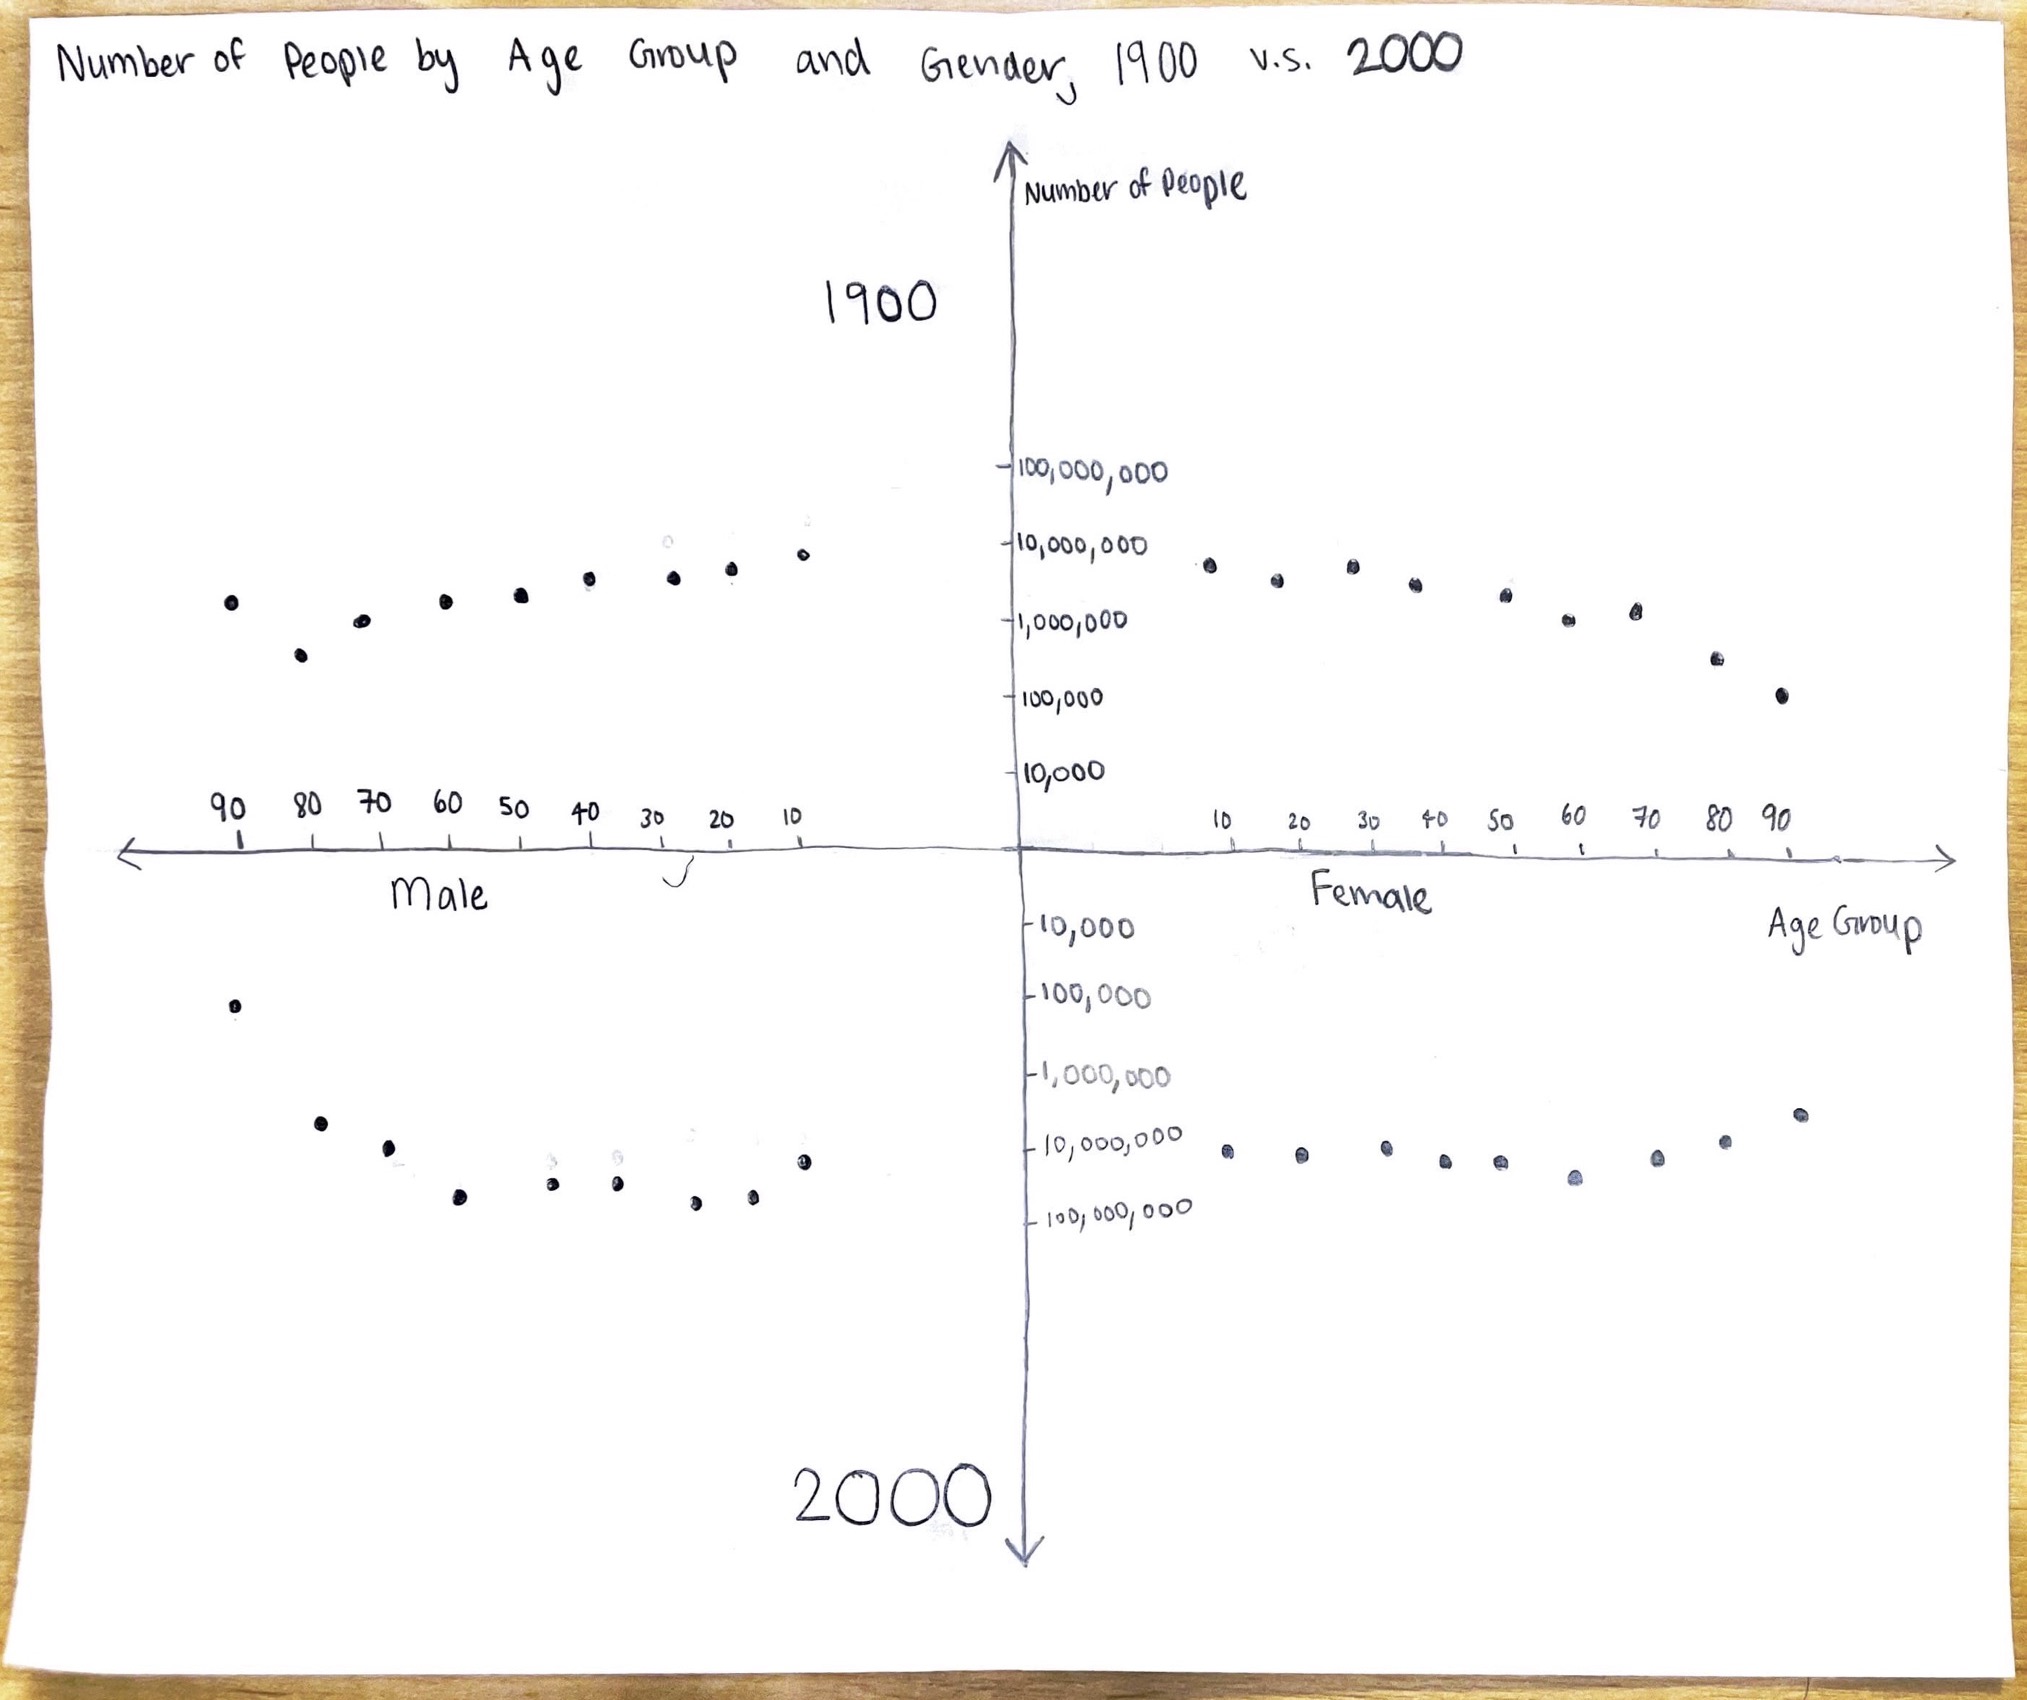 Number of People by Age Group and Gender, 1900 v.s. 2000
Number of People
1900
100,000,000
10,000,000
1,000,000
100,000
10,000
90 80 70 60 50 40 30 20 10
10 20 30 40 50 60 70 80 90
Male
Female
Age Group
10,000
100,000
1,000,000
10,000,000
100,000,000
2000